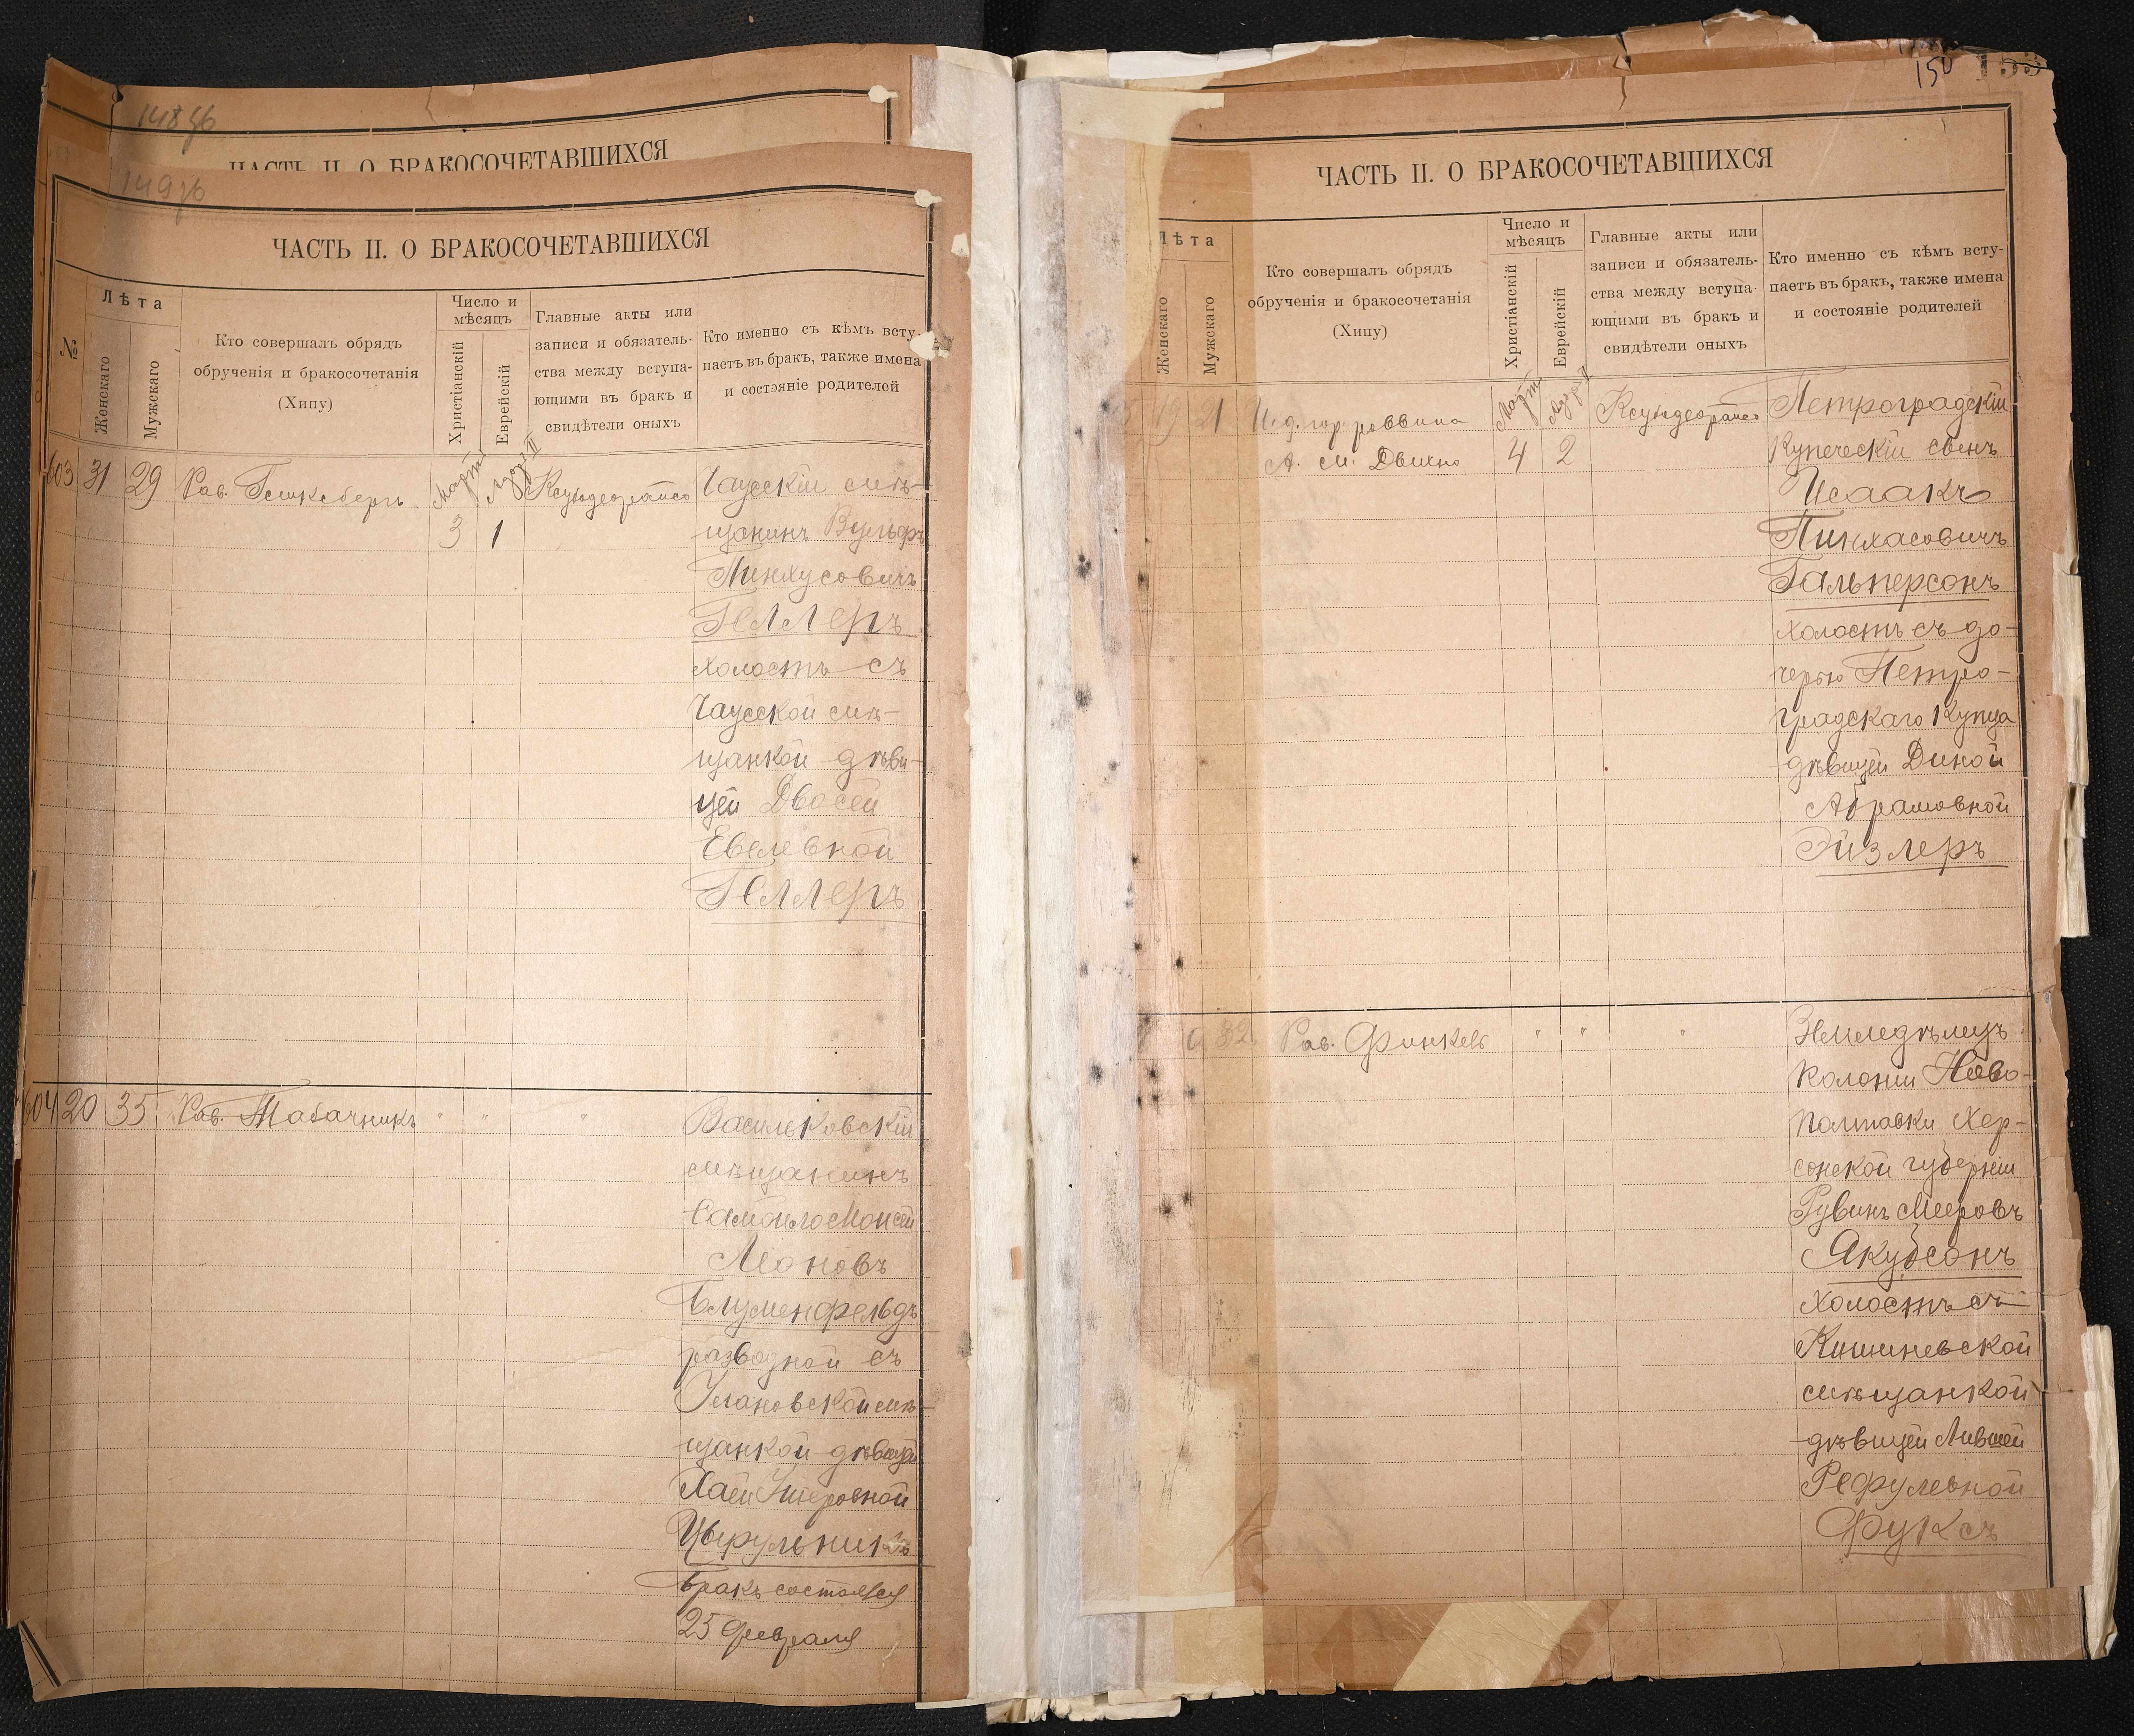 148 об
ЧАСТЬ II. О БРАКОСОЧЕТАВШИХСЯ
149 об
ЧАСТЬ II. О БРАКОСОЧЕТАВШИХСЯ
№
Лѣта
Женскаго
Мужскаго
Кто совершалъ обрядъ
обрученія и бракосочетанія
(Хипу)
Число и
мѣсяцъ
Христіанскій
Еврейскій
Главные акты или
записи и обязатель-
ства между вступа-
ющими въ бракъ и
свидѣтели оныхъ
Кто именно съ кѣмъ всту-
паетъ въ бракъ, также имена
и состояніе родителей
603 31 29 Рав. Марта Адаръ II Чаусскій мѣ-
3 1 щанинъ Вульфъ
Пинхусовичъ
Геллеръ
холостъ съ
Чаусской мѣ-
щанкой дѣви-
цей Двосей
Евелевной
Геллеръ
604 20 35 Рав. Табачникъ " " " Васильковскій
мѣщанинъ
Самойло Моисей
Леоновъ
Блуменфельдъ
разводной съ
Улановской мѣ-
щанкой дѣвицей
Хаей
Цырульникъ
бракъ состоялся
25 февраля
150
ЧАСТЬ II. О БРАКОСОЧЕТАВШИХСЯ
Лѣта
Женскаго
Мужскаго
Кто совершалъ обрядъ
обрученія и бракосочетанія
(Хипу)
Число и
мѣсяцъ
Христіанскій
Еврейскій
Главные акты или
записи и обязатель-
ства между вступа-
ющими въ бракъ и
свидѣтели оныхъ
Кто именно съ кѣмъ всту-
паетъ въ бракъ, также имена
и состояніе родителей
19 21 И. д. гор. раввина Марта Адаръ II Петроградскій
А. М. 4 2 Купеческій сынъ
Исаакъ
Пинхасовичъ
Гальперсонъ
холостъ съ до-
черью Петро-
градскаго Купца
дѣвицей Диной
Абрамовной
Эйзлеръ
32 Рав. Финкель " " " Земледѣлецъ
колоніи Ново-
полтавки Хер-
сонской губерніи
Рувинъ Мееровъ
Якубсонъ
холостъ съ
Кишиневской
мѣщанкой
дѣвицей
Рефулевной
Фуксъ